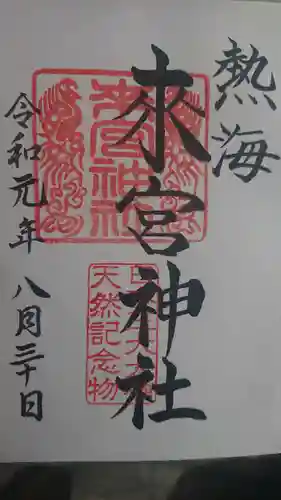 熱海
來宮神社
來宮神社
天然記念物
令和元年八月三十日